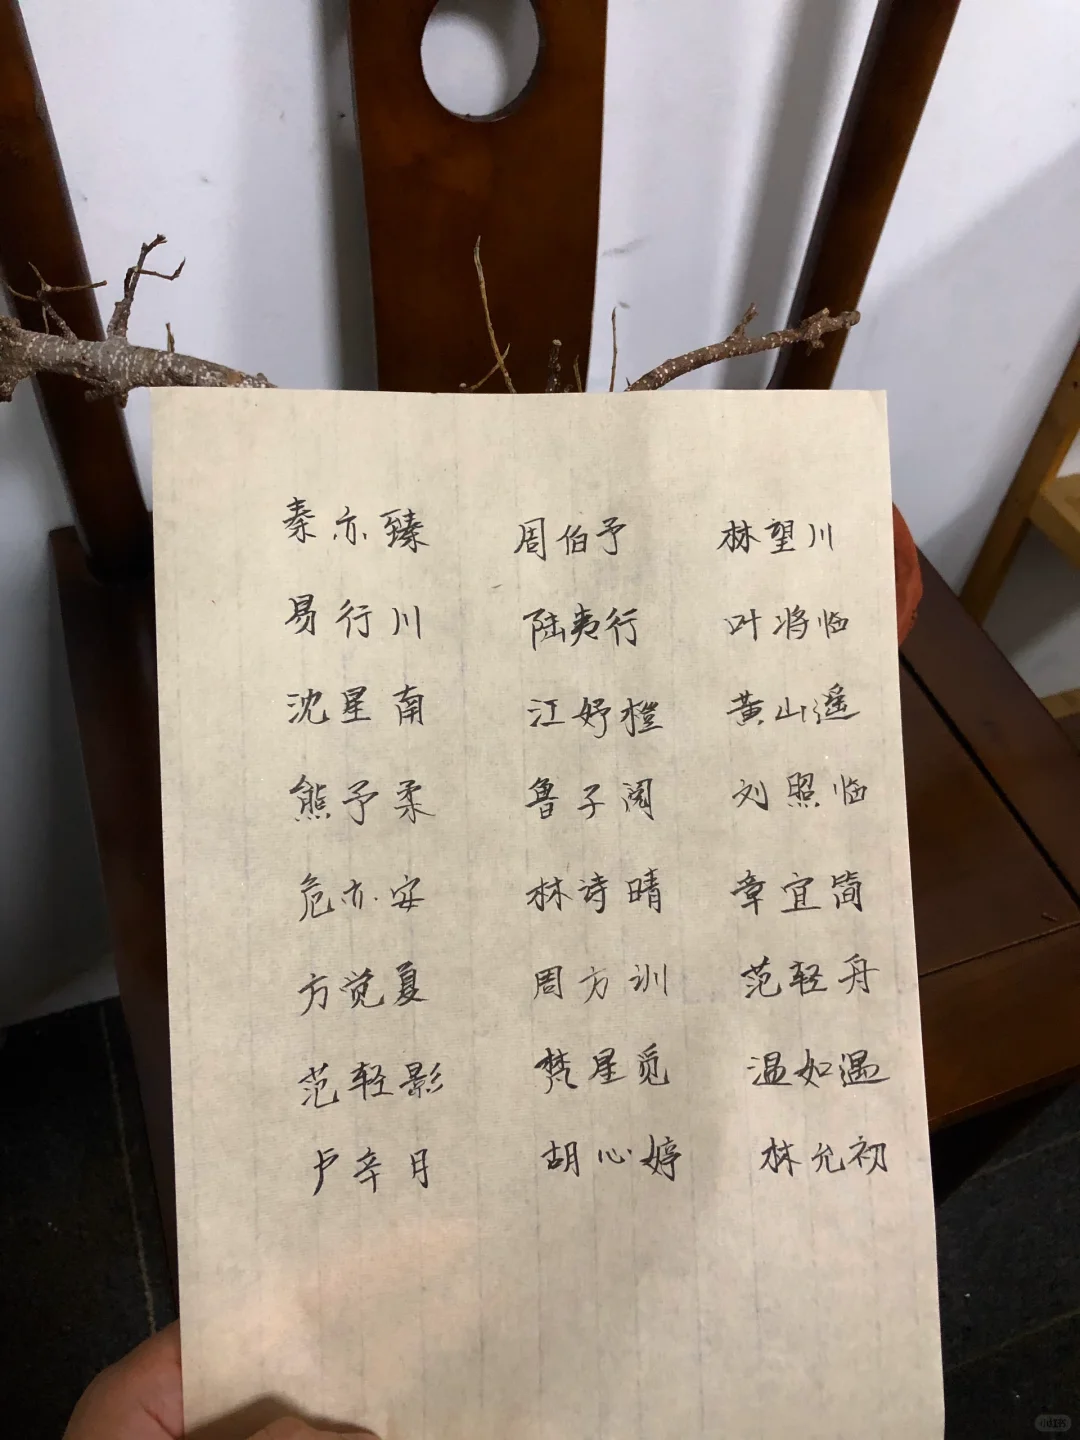 秦亦臻 周伯予 林望川
易行川 陆夷行 叶将临
沈星南 江妤橙 黄山遥
熊予柔 鲁子阅 刘照临
危亦安 林诗晴 章宜简
方觉夏 周方训 范轻舟
范轻影 梵星觅 温如遇
卢辛月 胡心婷 林允初
小红书